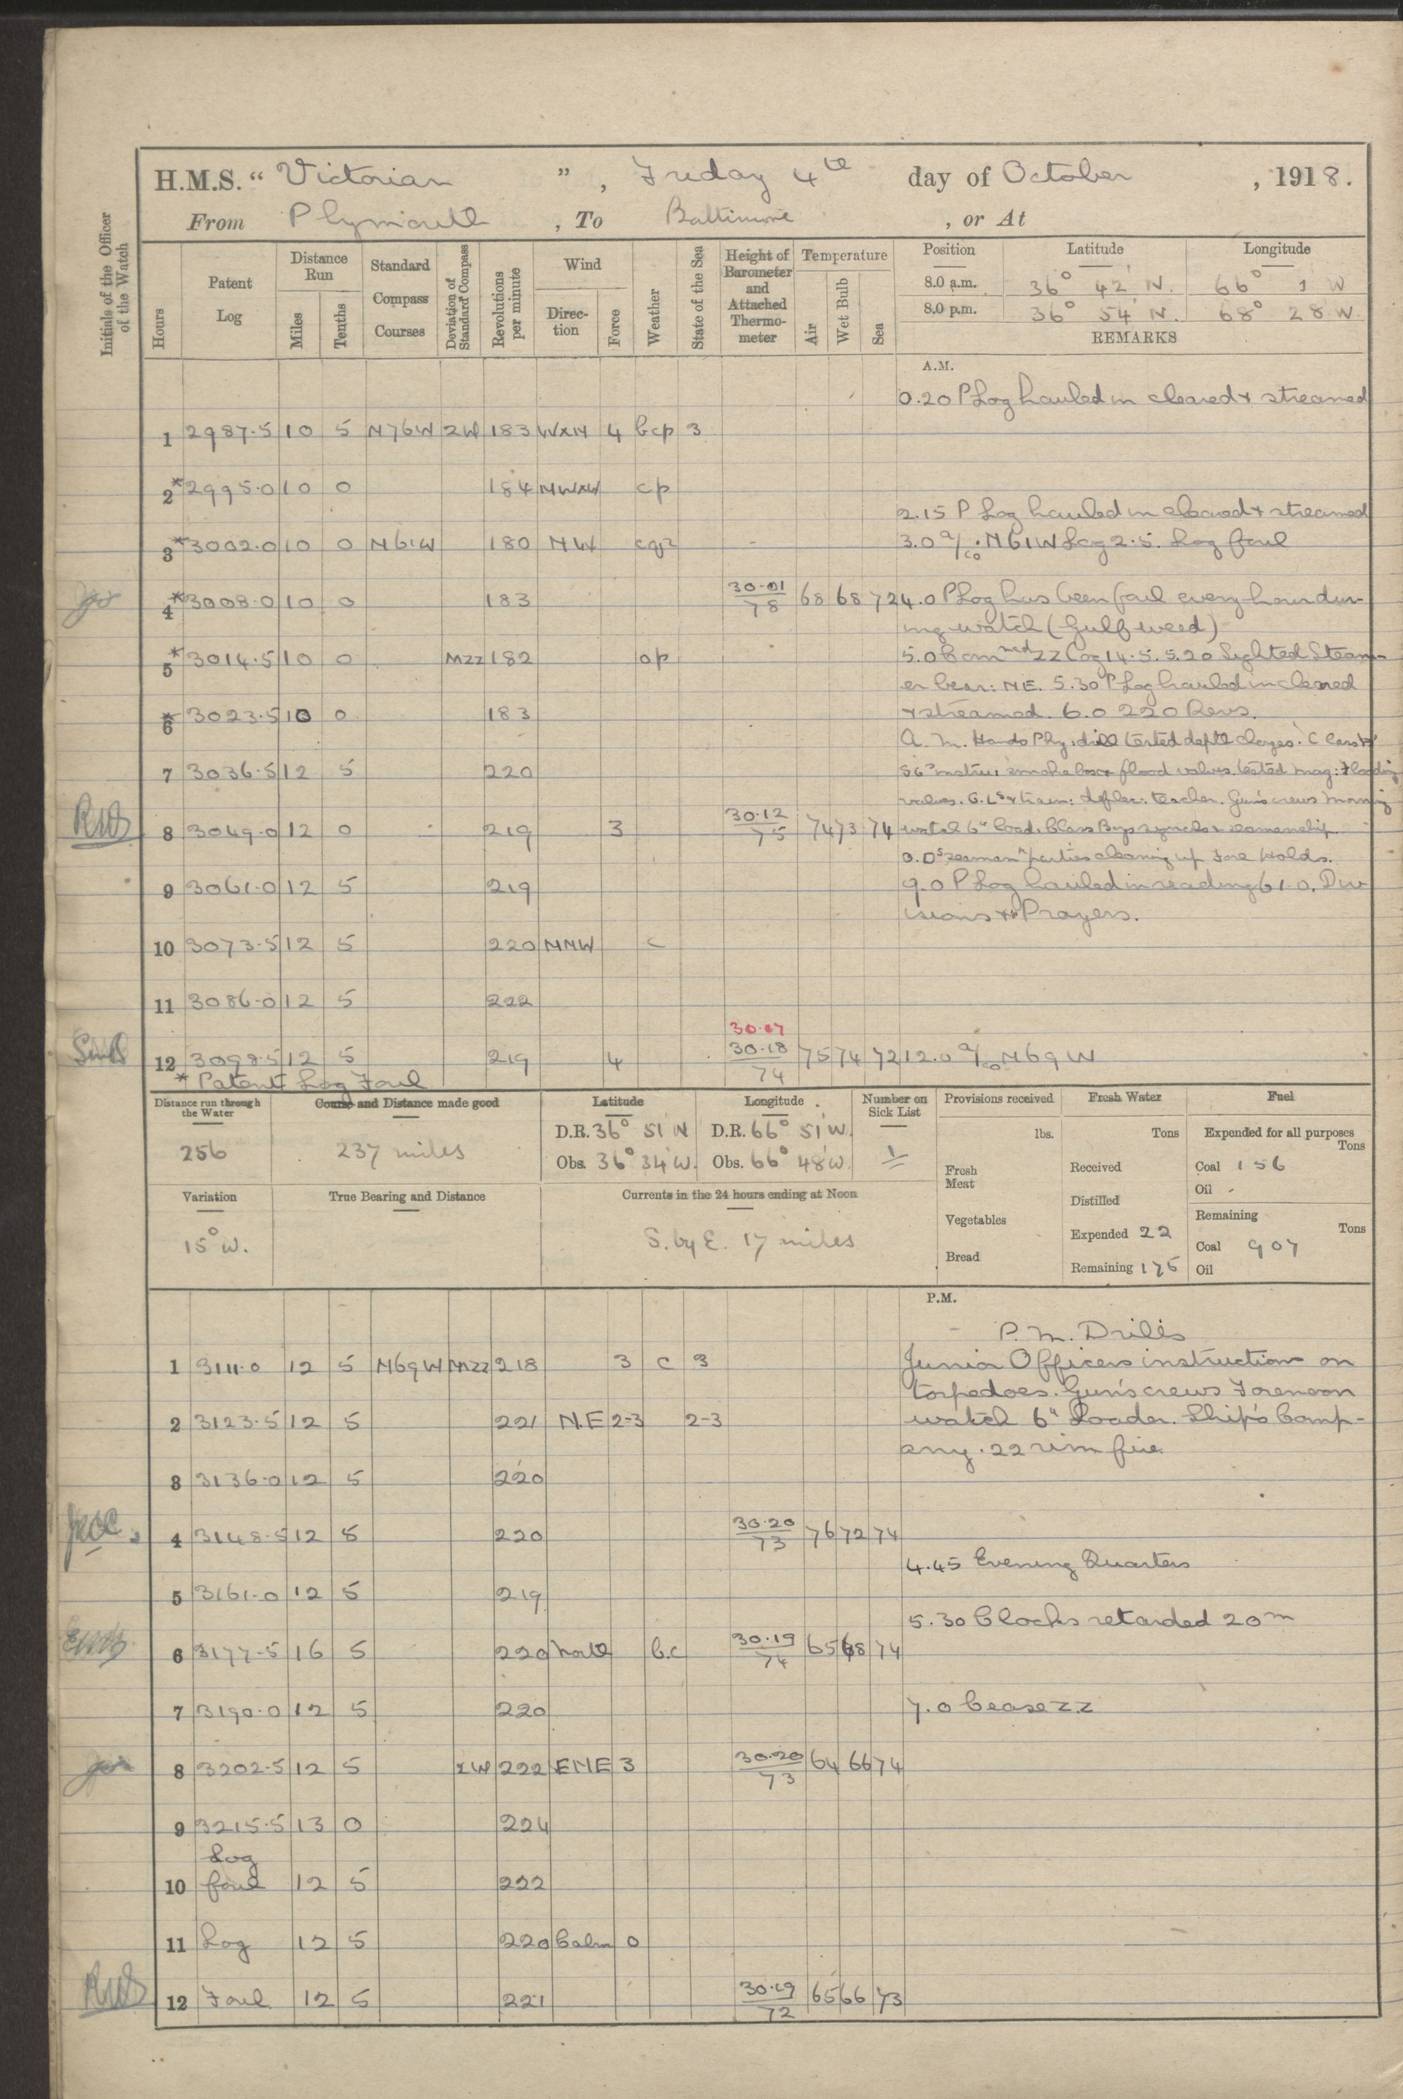 H.M.S. “ Victorian ” , Friday 4th day of October , 1918.
From Plymouth , To Baltimore , or At
Initials of the Officer of the Watch
Hours
Patent Log
Distance Run
Miles
Tenths
Standard Compass Courses
Deviation of Standard Compass
Revolutions per minute
Wind
Direction
Force
Weather
State of the Sea
Height of Barometer and Attached Thermometer
Temperature
Air
Wet Bulb
Sea
Position Latitude Longitude
8.0 a.m. 36° 42' N. 66° 1 W
8.0 p.m. 36° 54' N. 68° 28 W.
REMARKS
A.M.
0.20 P Log hauled in cleared & streamed
1 2987.5 10 5 N76W 2W 183 WxN 4 bcp 3
2 *2995.0 10 0 184 NWxW cp
2.15 P Log hauled in cleared & streamed
3 *3002.0 10 0 N61W 180 NW cq2 3.0 a/co N61W Log 2.5. Log foul
4 *3008.0 10 0 183 30.01/78 68 68 72 4.0 P Log has been foul every hour dur-
ing watch (Gulf weed)
5 *3014.5 10 0 Mzz 182 op 5.0 Commced ZZ Log 14.5. 5.20 Sighted Steam-
er bear: NE. 5.30 P Log hauled in cleared
6 *3023.5 10 0 183 & streamed. 6.0 220 Revs.
A.M. Hands Phy: drill tested depth charges.
7 3036.5 12 5 220 smoke boxes flood valves tested mag: flooding
valves. Gun's crews morning
8 3049.0 12 0 219 3 30.12/75 74 73 74 watch 6" load. Class Boys
parties cleaning up Fore Holds.
9 3061.0 12 5 219 9.0 P Log hauled in reading 61.0. Div-
isions & Prayers.
10 3073.5 12 5 220 NNW c
11 3086.0 12 5 222
30.07
12 3098.5 12 5 219 4 30.18/74 75 74 72 12.0 a/co N69W
* Patent Log Foul
Distance run through the Water
256
Course and Distance made good
237 miles
Latitude
D.R. 36° 51' N
Obs. 36° 34' W.
Longitude
D.R. 66° 51' W.
Obs. 66° 48' W.
Number on Sick List
1
Provisions received
lbs.
Fresh Meat
Vegetables
Bread
Fresh Water
Tons
Received
Distilled
Expended 22
Remaining 175
Fuel
Expended for all purposes
Tons
Coal 156
Oil -
Remaining
Tons
Coal 907
Oil
Variation
15° W.
True Bearing and Distance
Currents in the 24 hours ending at Noon
S. by E. 17 miles
P.M.
P.M. Drills
1 3111.0 12 5 N69W Mzz 218 3 c 3 Junior Officers instruction on
torpedoes. Gun's crews Forenoon
2 3123.5 12 5 221 N.E 2-3 2-3 watch 6" Loader. Ship's Comp-
any .22 rim fire
3 3136.0 12 5 220
4 3148.5 12 5 220 30.20/73 76 72 74
4.45 Evening Quarters
5 3161.0 12 5 219
5.30 Clocks retarded 20m
6 3177.5 16 5 220 North b.c 30.19/74 65 68 74
7 3190.0 12 5 220 7.0 Cease ZZ
8 3202.5 12 5 2W 222 ENE 3 30.20/73 64 66 74
9 3215.5 13 0 224
10 Log foul 12 5 222
11 Log 12 5 220 Calm 0
12 Foul 12 5 221 30.19/72 65 66 73